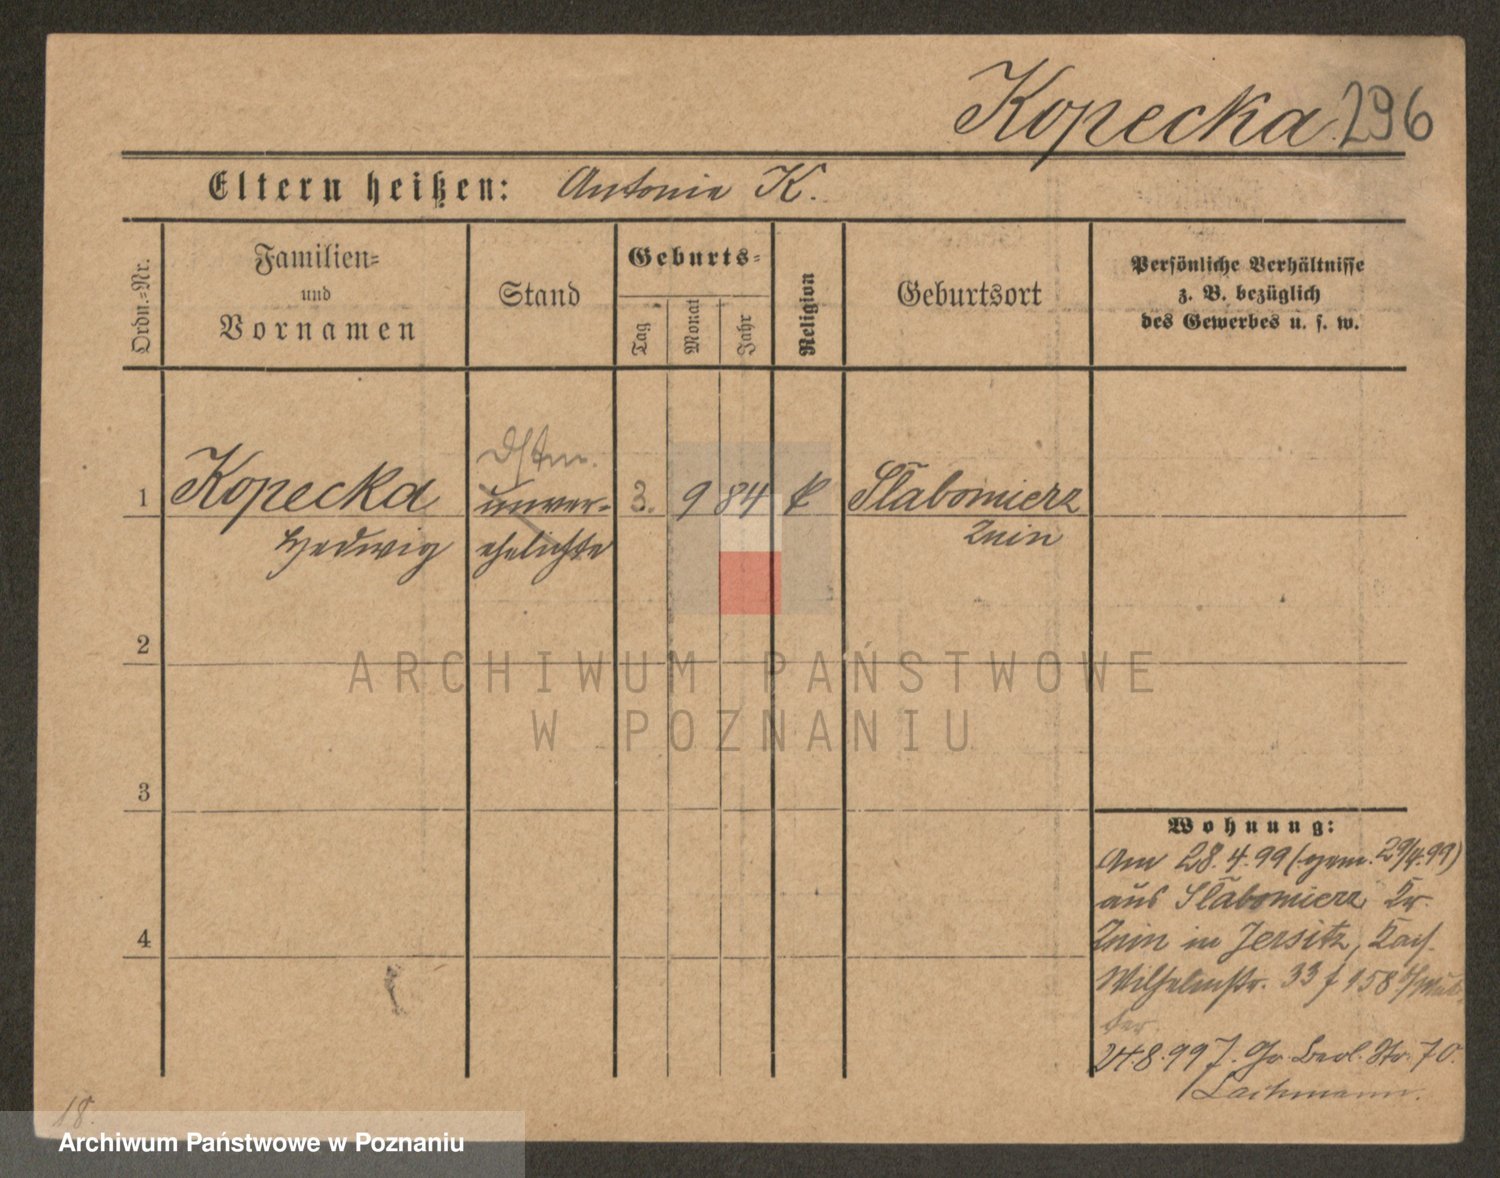 Kopecka 296
Eltern heißen: Antonie K.
Ordn.=Nr.
Familien=
und
Vornamen
Stand
Geburts=
Tag
Monat
Jahr
Religion
Geburtsort
Persönliche Verhältnisse
z. B. bezüglich
des Gewerbes u. s. w.
1 Kopecka unver= 3. 9 84 k Slabomierz
Hedwig ehelichte Znin
2
3
4
Wohnung:
Am 28.4.99 (gem. 29/4.99)
aus Slabomierz Kr.
Znin in Jersitz,
Wilhelmstr. 33
24.8.99 J. Gr. Berl. Str. 70.
Lachmann.
18.
ARCHIWUM PAŃSTWOWE
W POZNANIU
Archiwum Państwowe w Poznaniu